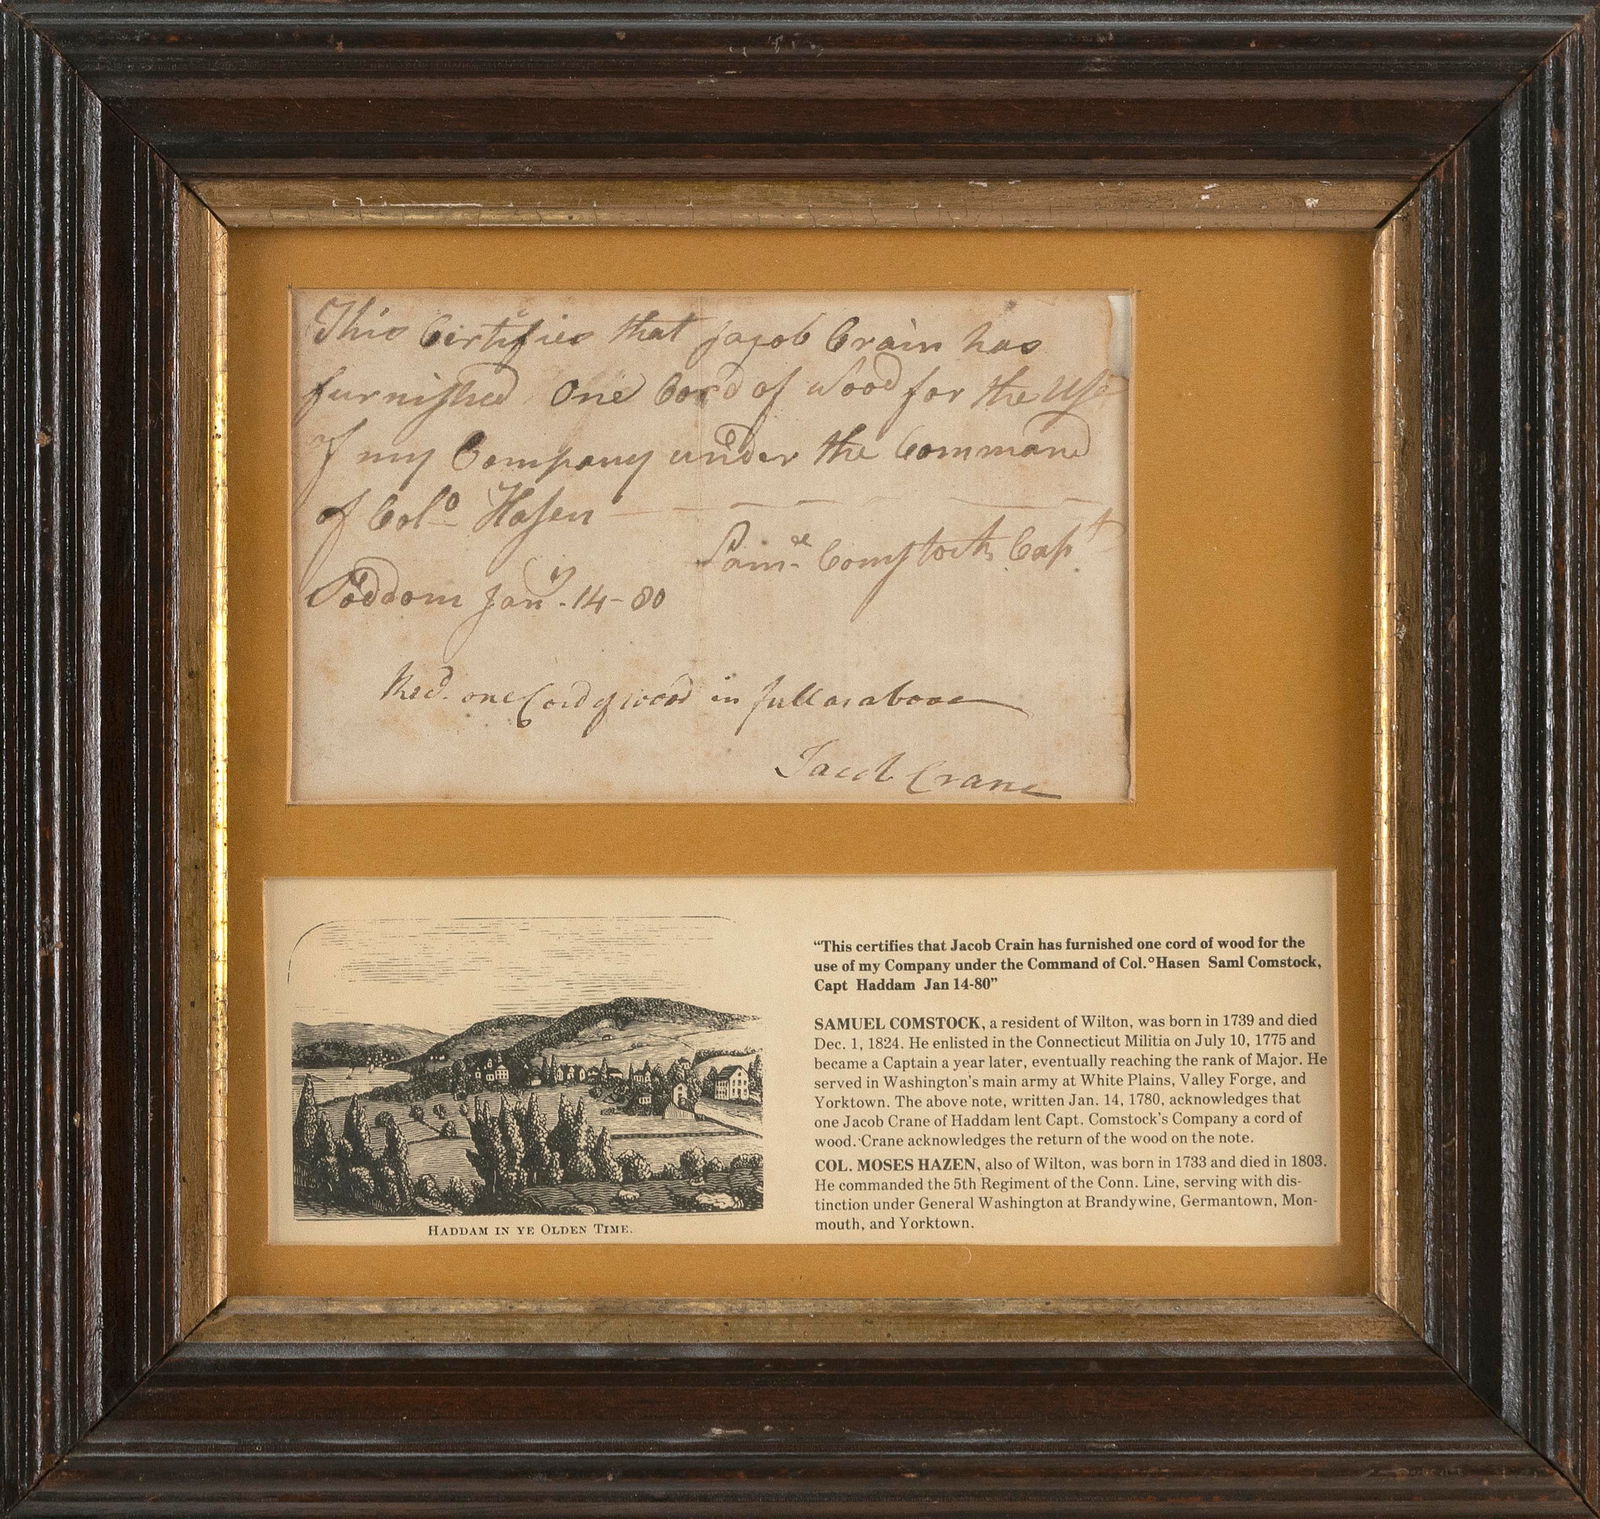 This Certifies that Jacob Crain has
furnished One Cord of Wood for the Use
of my Company under the Command
of Colo Hasen
Saml Comstock Capt
Soddom Jany. 14-80
Recd. one Cord of wood in full as above
Jacob Crane
“This certifies that Jacob Crain has furnished one cord of wood for the
use of my Company under the Command of Col.° Hasen Saml Comstock,
Capt Haddam Jan 14-80”
SAMUEL COMSTOCK, a resident of Wilton, was born in 1739 and died
Dec. 1, 1824. He enlisted in the Connecticut Militia on July 10, 1775 and
became a Captain a year later, eventually reaching the rank of Major. He
served in Washington's main army at White Plains, Valley Forge, and
Yorktown. The above note, written Jan. 14, 1780, acknowledges that
one Jacob Crane of Haddam lent Capt. Comstock's Company a cord of
wood. Crane acknowledges the return of the wood on the note.
COL. MOSES HAZEN, also of Wilton, was born in 1733 and died in 1803.
He commanded the 5th Regiment of the Conn. Line, serving with dis-
tinction under General Washington at Brandywine, Germantown, Mon-
mouth, and Yorktown.
HADDAM IN YE OLDEN TIME.